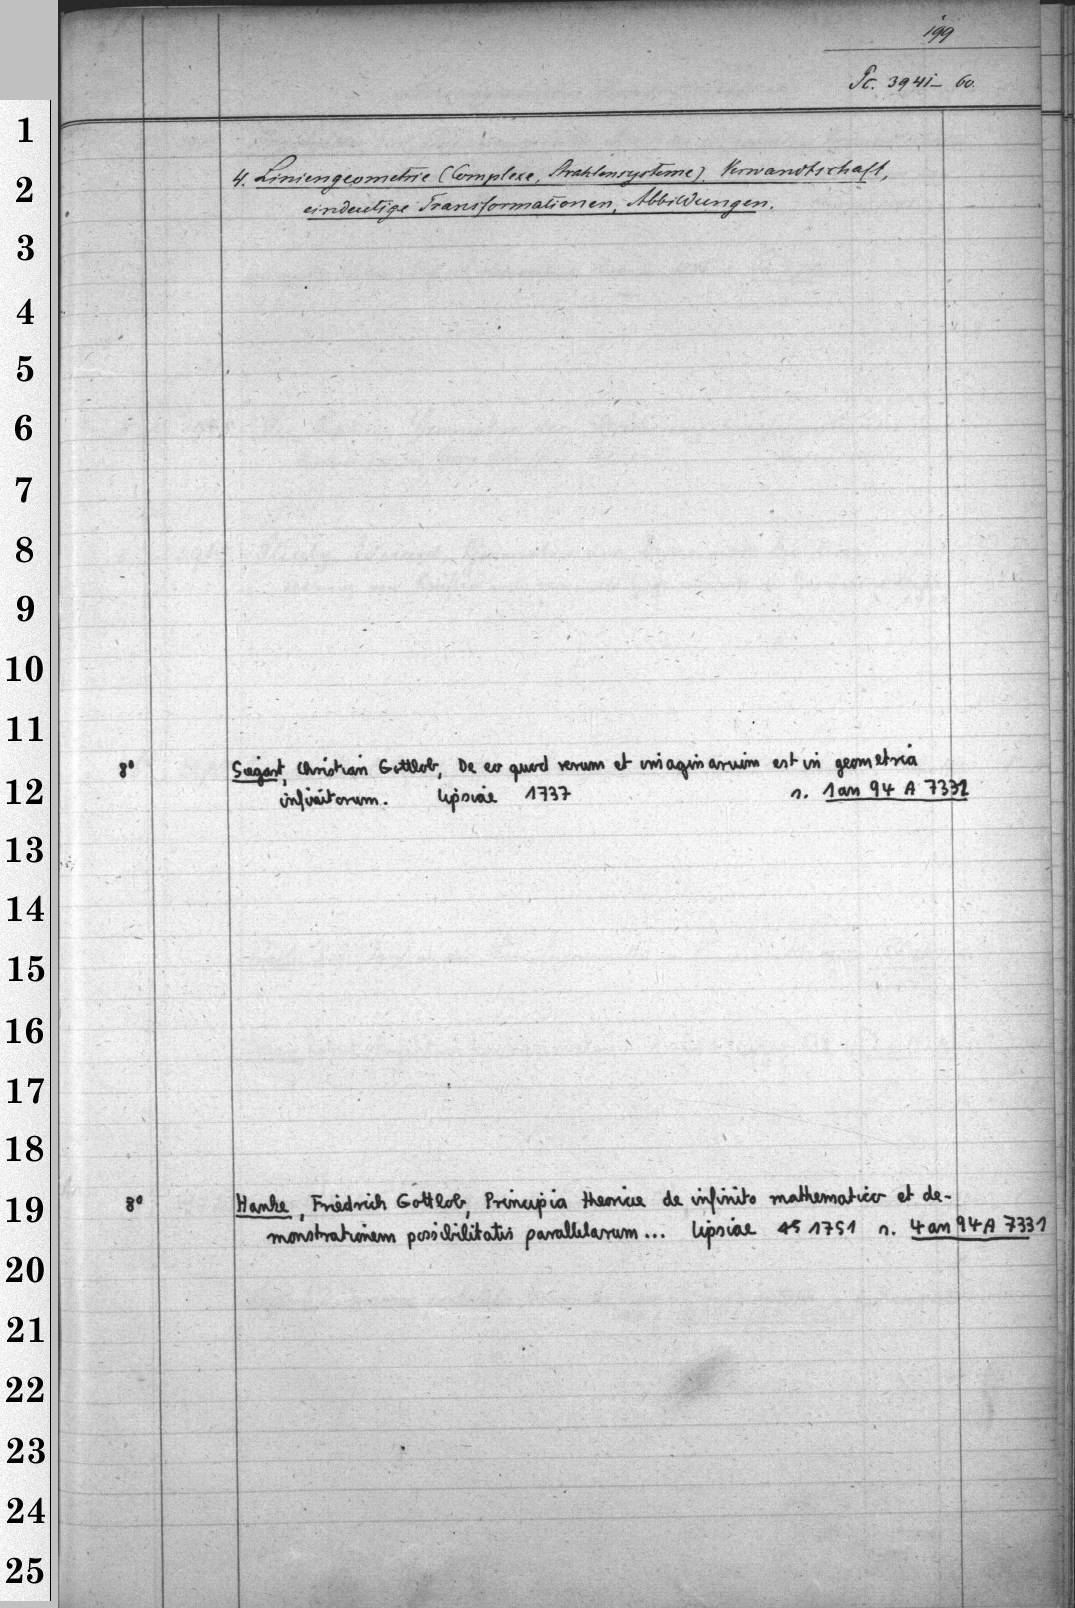 199
Pc. 3941-60.
1
4. Liniengeometrie (Complexe, Strahlensysteme). Verwandtschaft,
2
eindeutige Transformationen, Abbildungen.
3
4
5
6
7
8
9
10
11
8° Siegart, Christian Gottlob, De eo quod verum et imaginarium est in geometria
12
infinitorum. Lipsiae 1737 n. 1 an 94 A 7331
13
14
15
16
17
18
19
8° Hanke, Friedrich Gottlob, Principia theoriae de infinito mathematico et de-
monstrationem possibilitatis parallelarum... Lipsiae 1751 n. 4 an 94 A 7331
20
21
22
23
24
25